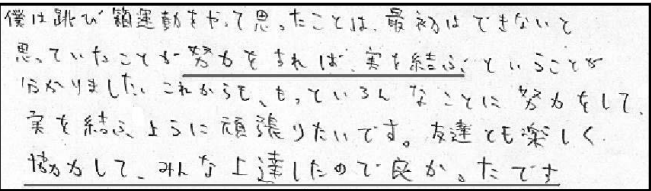 僕は跳び箱運動をやって思ったことは、最初はできないと
思っていたことが努力をすれば、実を結ぶということが
分かりました。これからも、もっといろんなことに努力をして、
実を結ぶように頑張りたいです。友達とも楽しく
協力して、みんな上達したので良かったです